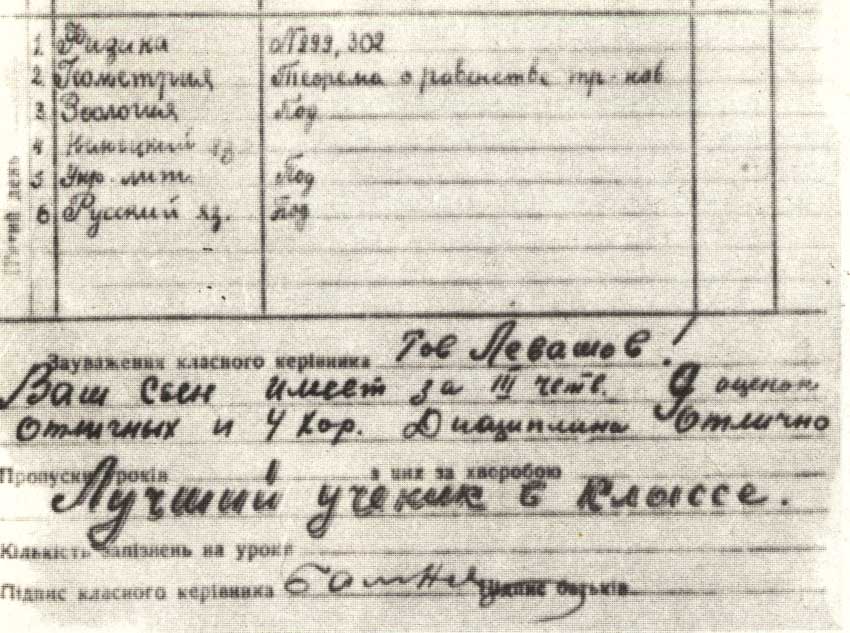 1 Физика №299, 302
2 Геометрия Теорема о равенстве тр-ков
3 Зоология Код
4
5 Укр. лит. Код
6 Русский яз. Код
день
Зауваження класного керівника Тов Левашов!
Ваш сын имеет за III четв. 9 оценок
отличных и 4 хор. Дисциплина отлично
Пропуски уроків з них за хворобою
Лучший ученик в классе.
Кількість запізнень на уроки
Підпис класного керівника Підпис батьків